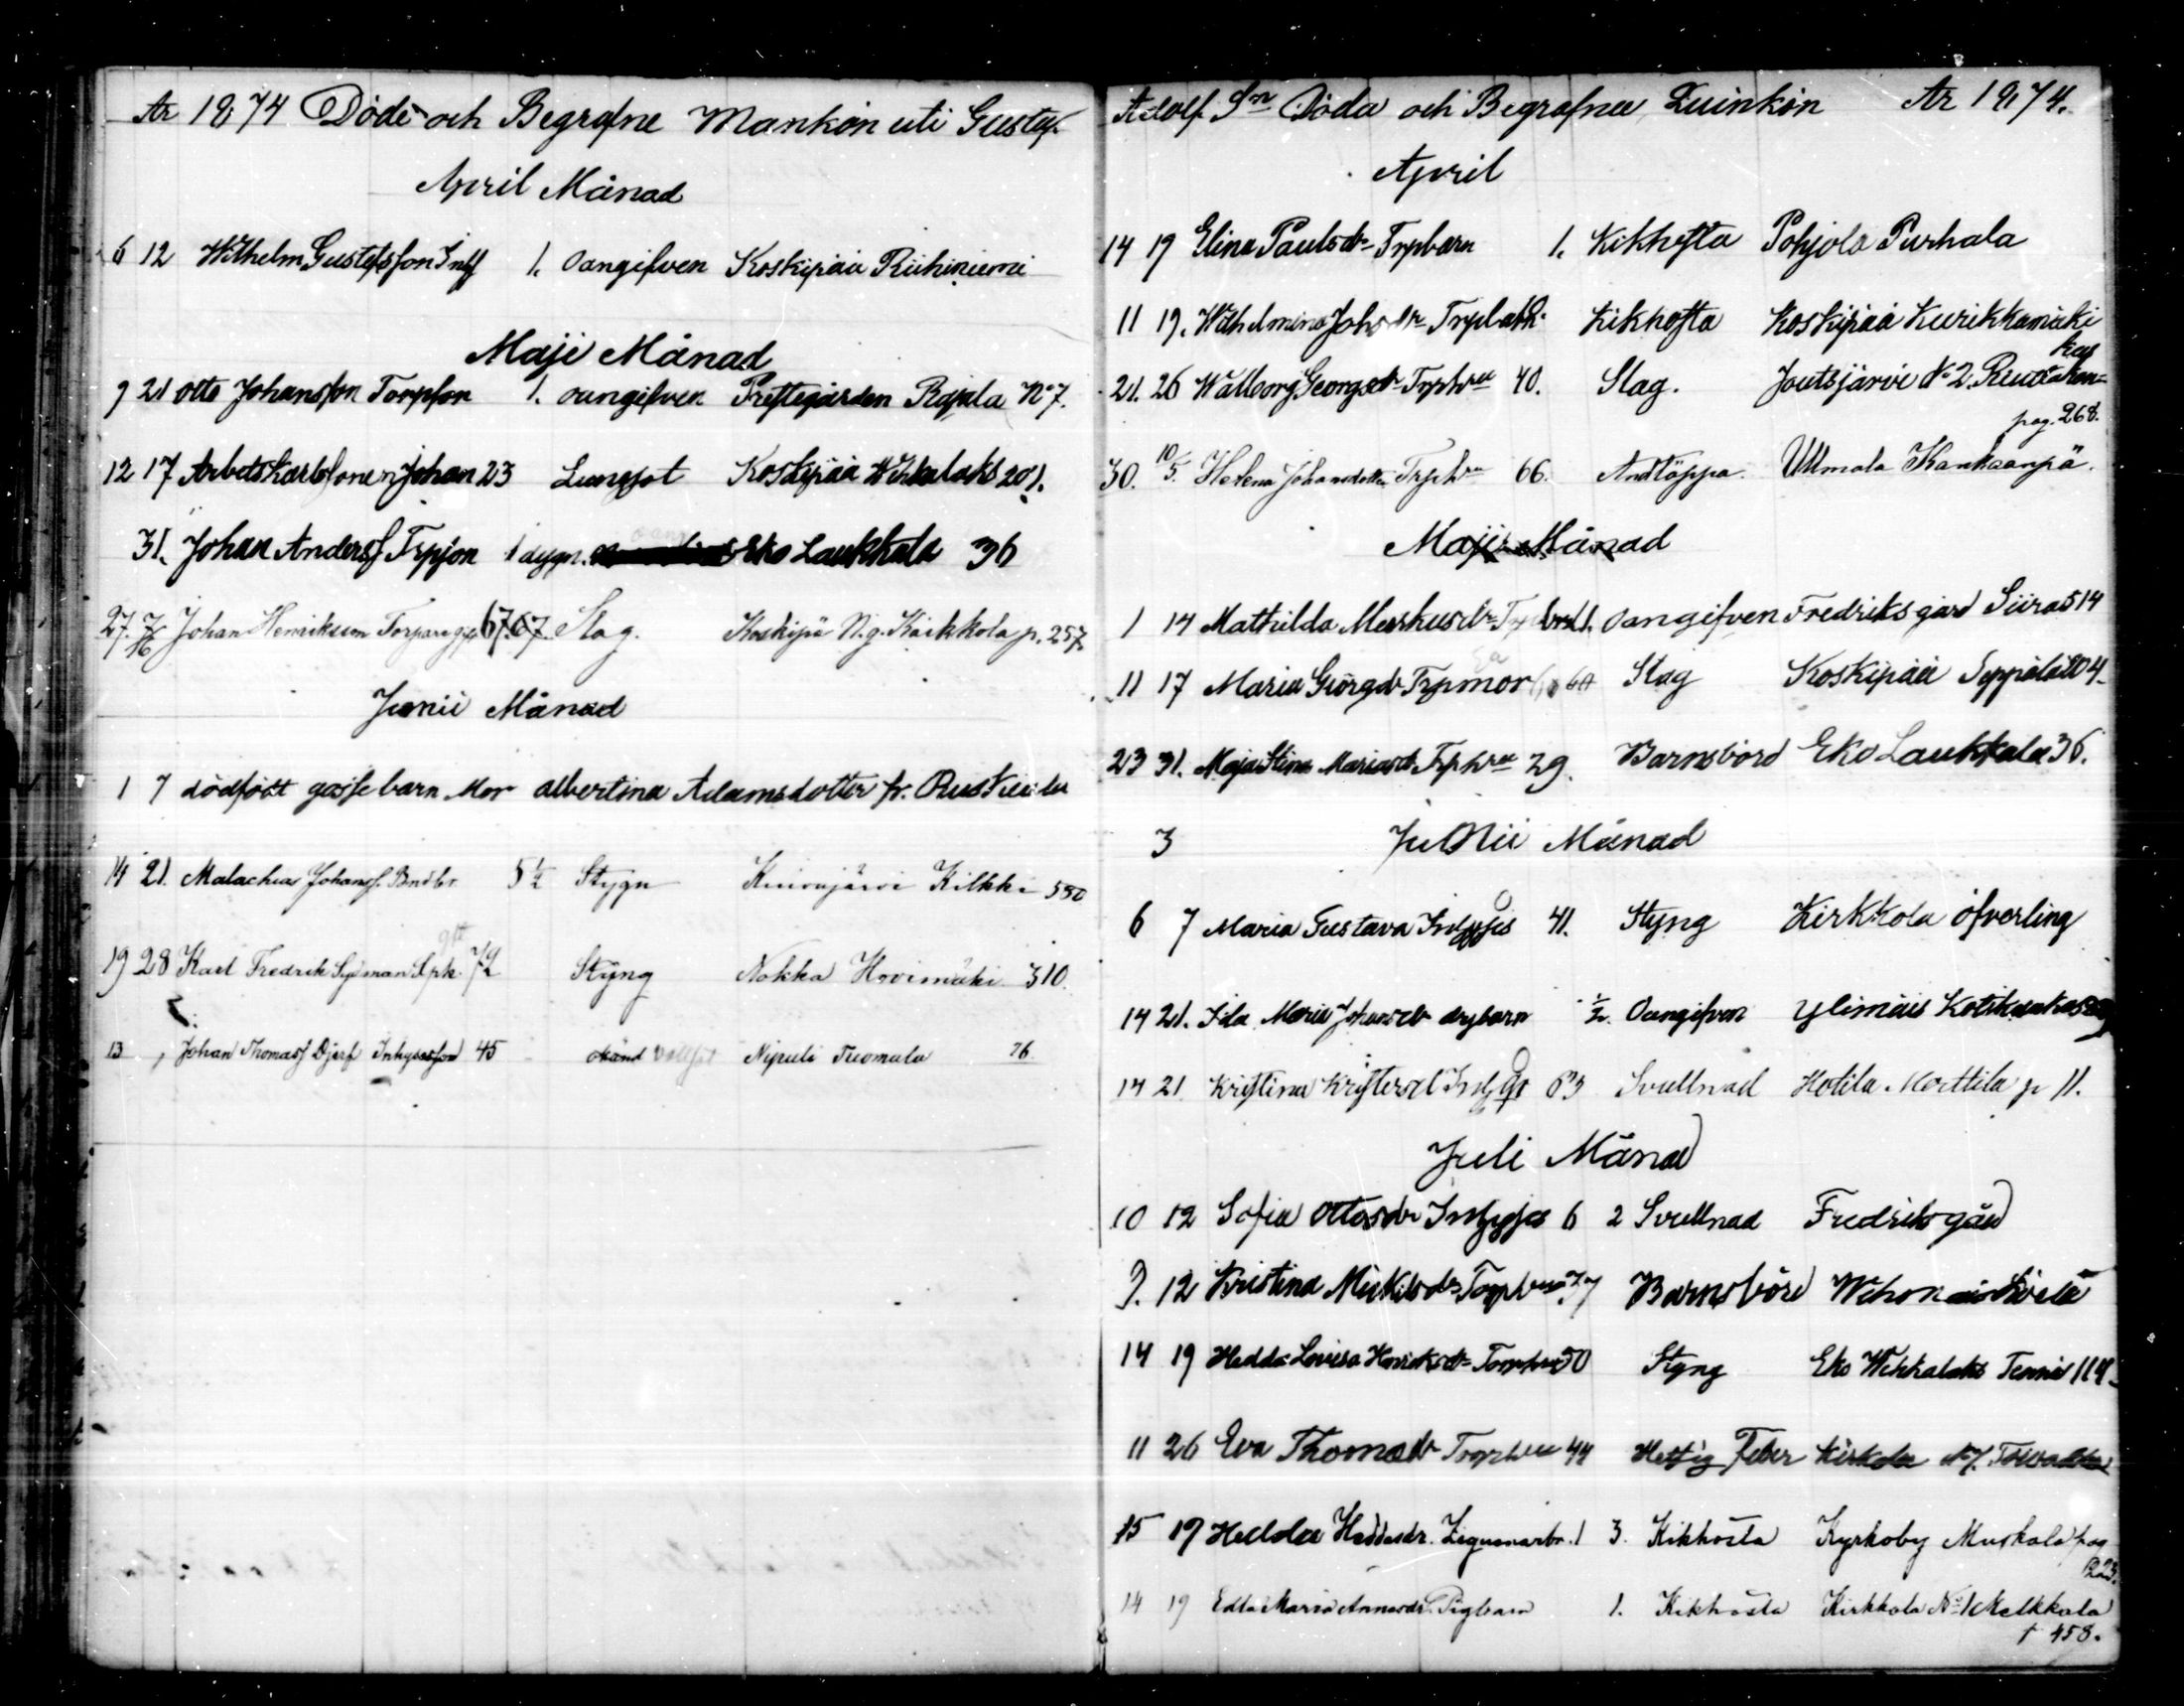 År 1874 Döde och Begrafne Mankön uti Gustaf
April Månad
6 12 Wilhelm Gustafsson Inh 1. oangifven Koskipää Riihiniemi
Maji Månad
9 21 Otto Johansson Torpson 1. oangifven Prestegården Rajala No 7.
12 17 Arbetskarlsonen Johan 23 Lungsot Koskipää Wehkalaks 201.
31. Johan Andersf Trpson 1 dygn. Eko Laukkala 36
27. 7/6 Johan Henriksson Torpare 67 67 Slag. Koskipä N.g. Kärkkola p. 257
Junii Månad
1 7 dödfödt gossebarn Mor Albertina Adamsdotter fr.
14 21. Malachias Johansf. Bndbr 5 1/2 Stygn Kuivajärvi Kilkki 580
19 28 Karl Fredrik Sydman Spk. gift 72 Styng Nokka Hovimäki 310.
13 Johan Thomasf Djerf Inhysesson 45 okänd Nipuli Tuomala 76
Adolf Sn Döda och Begrafna Quinkön År 1874.
April
14 19 Elina Paulsdr Trpbarn 1. Kikhosta Pohjola Purhala
11 19. Wilhelmina Johsdr Trpbarn Kikhosta Koskipää Kurikkamäki
21. 26 Walborg Georgsdr Trphru 40. Slag. Joutsjärvi No 2
pag. 268.
30. 10/5. Helena Johansdotter Trphru 66. Andtäppa. Ullmala Kankaanpä.
Maji Månad
1 14 Mathilda Markusdr 1. oangifven Fredriksgård Siira 514
11 17 Maria Görgdr Trpmor 60 Slag Koskipää Seppälä 204
23 31. Maja Stina Mariasdr Trphru 29. Barnsbörd Eko Laukkala 36.
3 Junii Månad
6 7 Maria Gustava 41. Styng Kirkkola öfverling
14 21. Ida Maria Johansdr 1/2. Oangifven Ylimäis
14 21 Kristina Kristersd 63 Svullnad Hotila Marttila p 11.
Juli Månad
10 12 Sofia Ottosdr 6 2 Svullnad Fredriksgård
9. 12 Kristina Mickelsdr Torphru 37 Barnsbörd
14 19 Hedda Lovisa Henriksdr Torphru 50 Styng Eko Wehkalaks 114
11 26 Eva Thomasdr Torphru 44 Hettig Feber Kirkola
15 19 Hedda Heddasdr. Zigenarbr. 1 3. Kikhosta Kyrkoby Muskala pag
14 19 Edla Maria Annasdr Pigbarn 1. Kikhosta Kirkkola No 1 Melkkola
458.